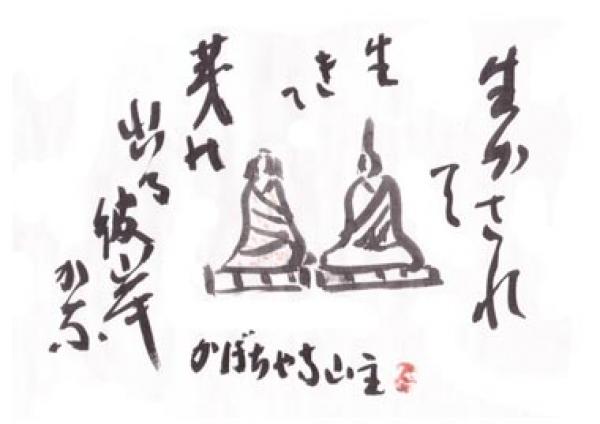 生かされ
て
生
きて
の
出る
彼岸
かな
かぼちゃ寺山主